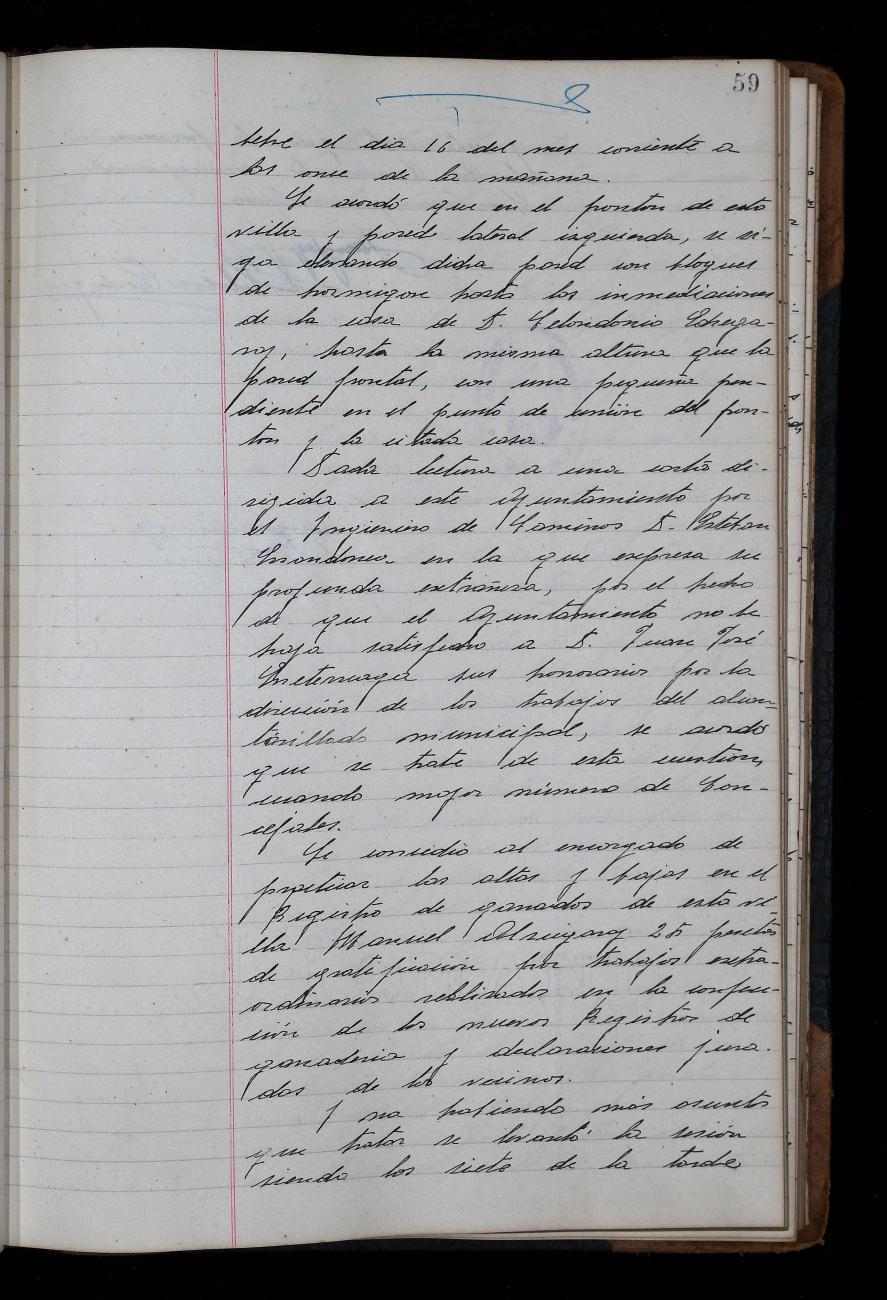 59
tebre el dia 16 del mes corriente a
las once de la mañana.
Se acordó que en el fronton de esta
villa y pared lateral izquierda, se si-
ga elevando dicha pared con bloques
de hormigon hasta las inmediaciones
de la casa de D. Celondonio Echega-
ray, hasta la misma altura que la
pared frontal, con una pequeña pen-
diente en el punto de unión del fron-
ton y la citada casa.
Dada lectura a una carta di-
rigida a este Ayuntamiento por
el Ingeniero de Caminos D. Esteban
Errandonea en la que expresa su
profunda extrañeza, por el hecho
de que el Ayuntamiento no le
haya satisfecho a D. Juan José
sus honorarios por la
dirección de los trabajos del alcan-
tarillado municipal, se acordó
que se trate de esta cuestion,
cuando mayor número de Con-
cejales.
Se concedio al encargado de
practicar las altas y bajas en el
Registro de ganados de esta vi-
lla Manuel Alzugaray 25 pesetas
de gratificación por trabajos extra-
ordinarios reblizados en la confec-
ción de los nuevos Registros de
ganaderia y declaraciones jura-
das de los vecinos.
Y no habiendo más asuntos
que tratar se levantó la sesión
siendo las siete de la tarde